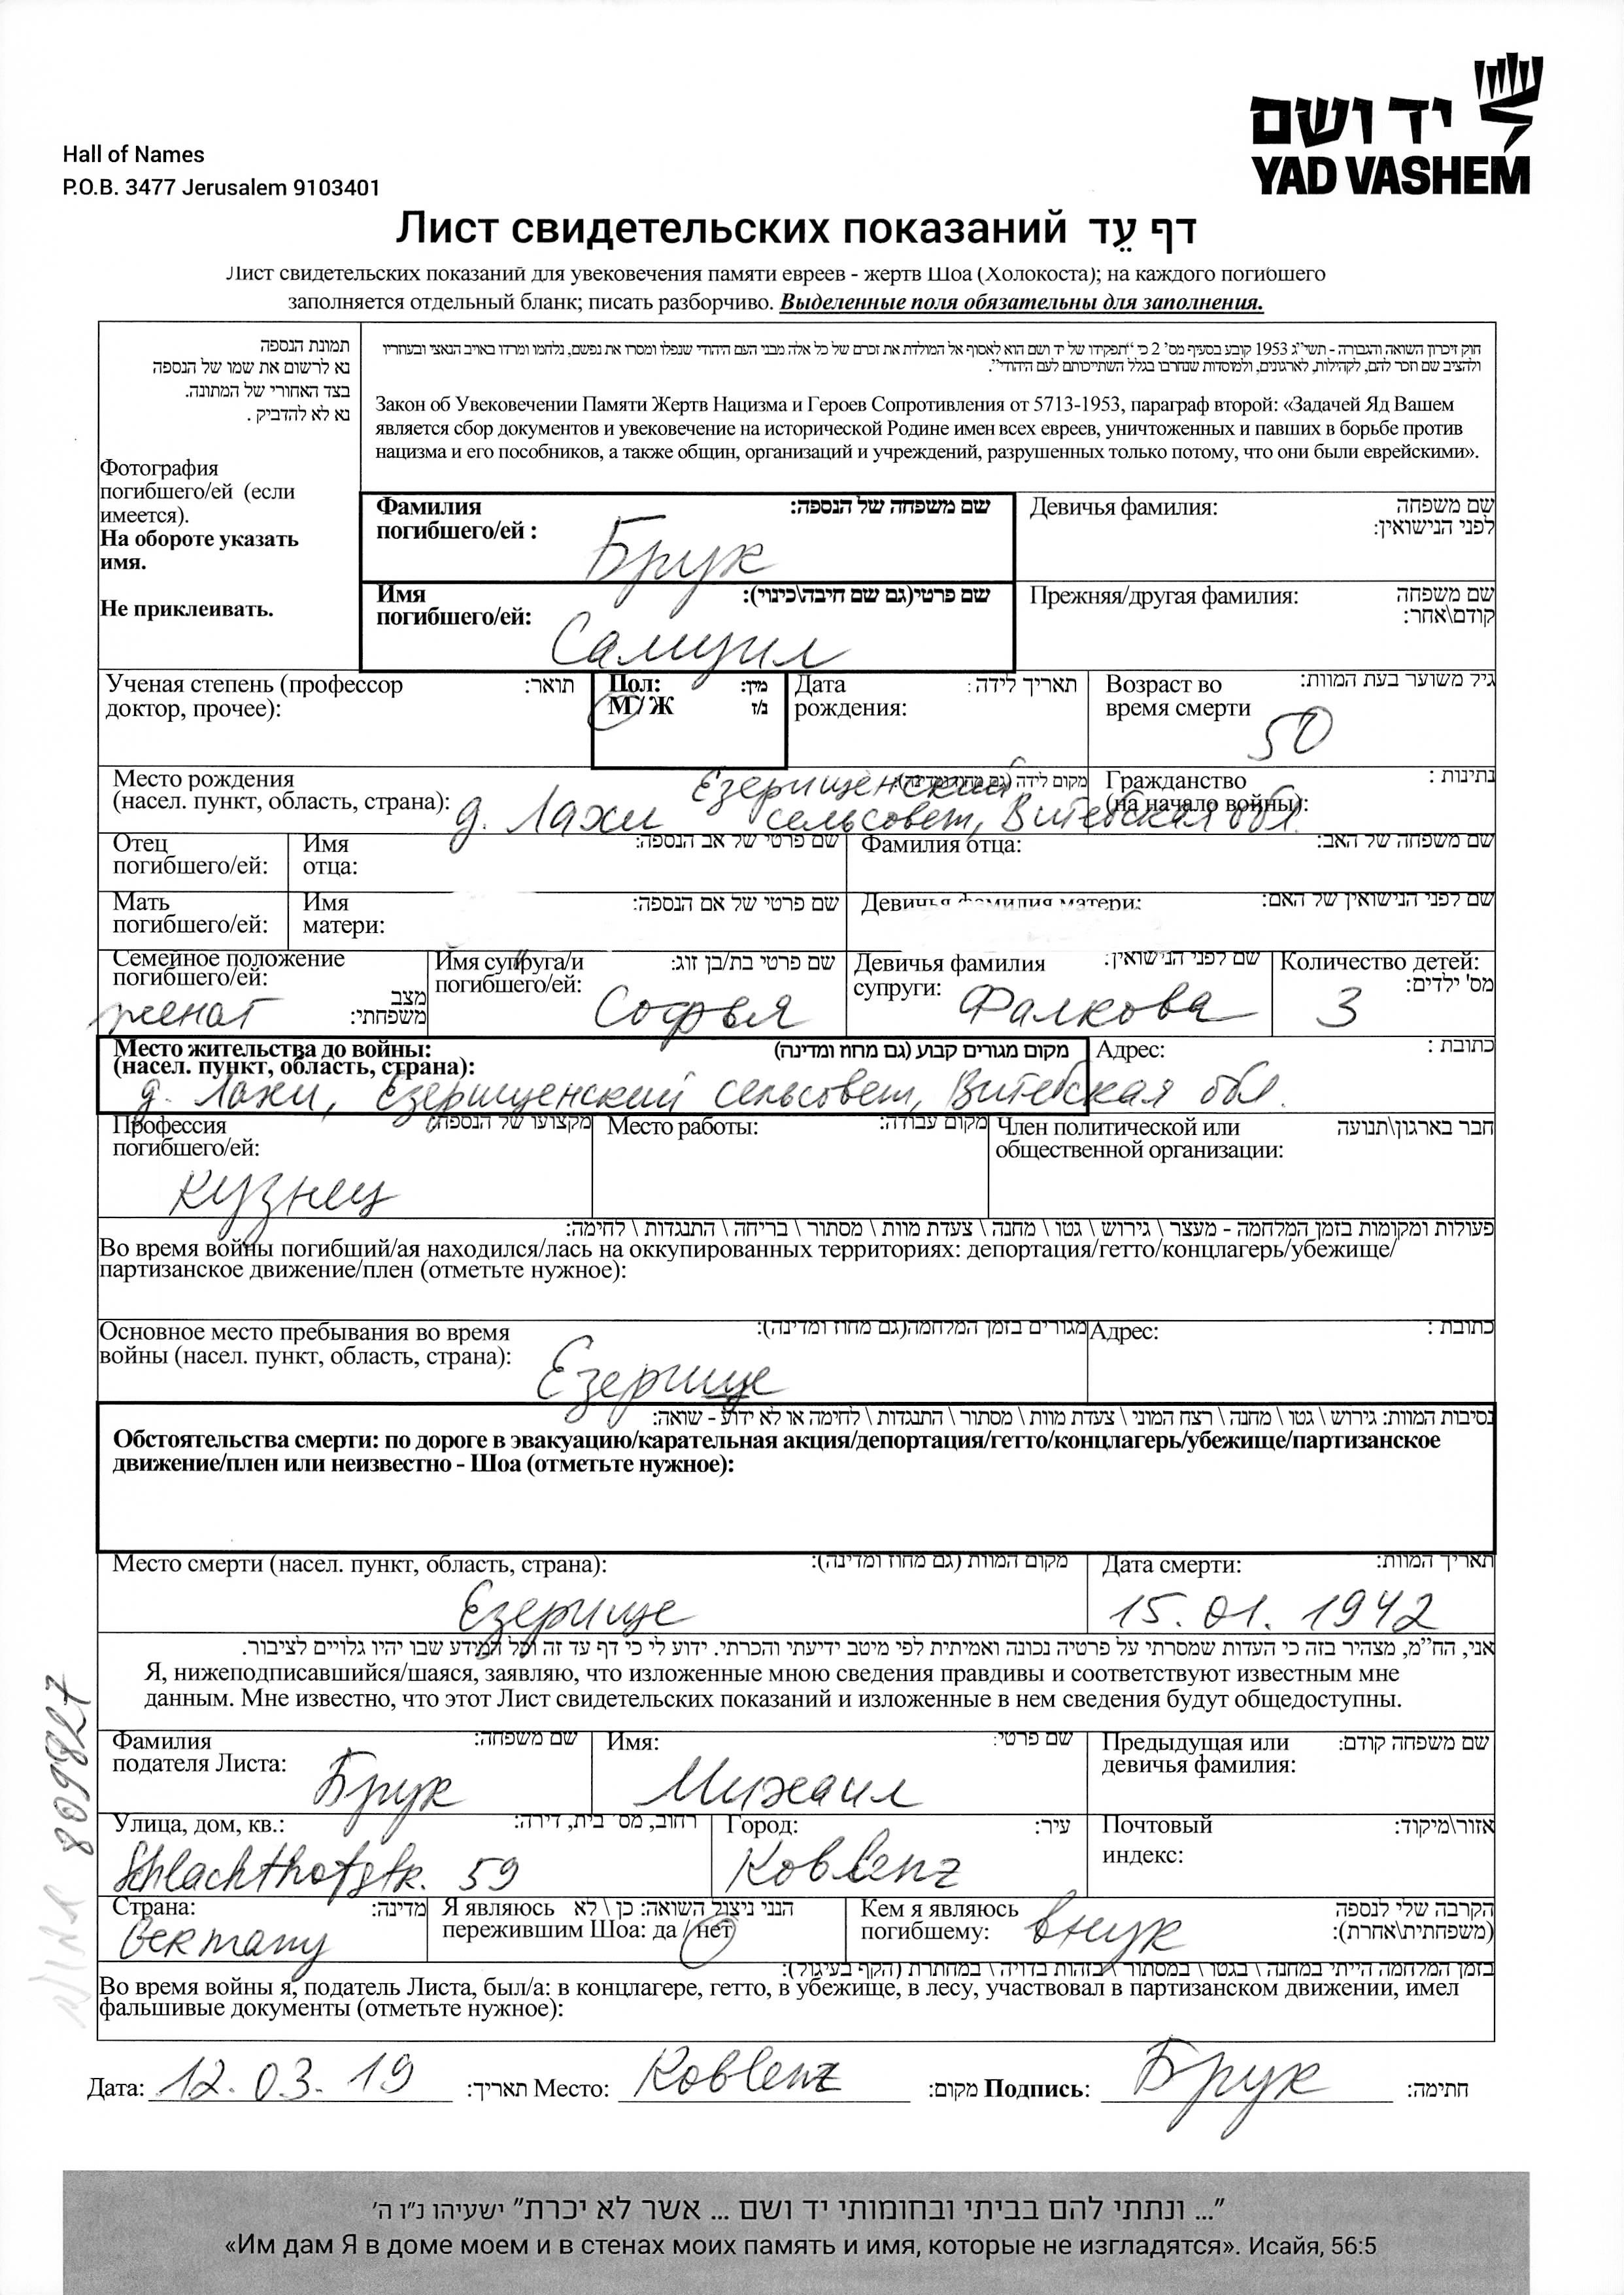 יד ושם
YAD VASHEM
Hall of Names
P.O.B. 3477 Jerusalem 9103401
Лист свидетельских показаний דף עֵד
Лист свидетельских показаний для увековечения памяти евреев - жертв Шоа (Холокоста); на каждого погибшего
заполняется отдельный бланк; писать разборчиво. Выделенные поля обязательны для заполнения.
תמונת הנספה
נא לרשום את שמו של הנספה
בצד האחורי של המתונה.
נא לא להדביק .
Фотография
погибшего/ей (если
имеется).
На обороте указать
имя.
Не приклеивать.
חוק זיכרון השואה והגבורה - תשי״ג 1953 קובע בסעיף מס' 2 כי "תפקידו של יד ושם הוא לאסוף אל המולדת את זכרם של כל אלה מבני העם היהודי שנפלו ומסרו את נפשם, נלחמו ומרדו באויב הנאצי ובעוזריו
ולהציב שם וזכר להם, לקהילות, לארגונים, ולמוסדות שנחרבו בגלל השתייכותם לעם היהודי".
Закон об Увековечении Памяти Жертв Нацизма и Героев Сопротивления от 5713-1953, параграф второй: «Задачей Яд Вашем
является сбор документов и увековечение на исторической Родине имен всех евреев, уничтоженных и павших в борьбе против
нацизма и его пособников, а также общин, организаций и учреждений, разрушенных только потому, что они были еврейскими».
Фамилия שם משפחה של הנספה:
погибшего/ей :
Брук
Девичья фамилия: שם משפחה
לפני הנישואין:
Имя שם פרטי(גם שם חיבה\כינוי):
погибшего/ей:
Самуил
Прежняя/другая фамилия: שם משפחה
קודם\אחר:
Ученая степень (профессор תואר:
доктор, прочее):
Пол: מין:
М / Ж ז/נ
Дата תאריך לידה:
рождения:
Возраст во גיל משוער בעת המוות:
время смерти
50
Место рождения מקום לידה (גם מחוז ומדינה):
(насел. пункт, область, страна):
д. Лахи Езерищенский
сельсовет, Витебская обл.
Гражданство נתינות :
(на начало войны):
Отец
погибшего/ей:
Имя שם פרטי של אב הנספה:
отца:
Фамилия отца: שם משפחה של האב:
Мать
погибшего/ей:
Имя שם פרטי של אם הנספה:
матери:
Девичья фамилия матери: שם לפני הנישואין של האם:
Семейное положение
погибшего/ей:
מצב
משפחתי:
женат
Имя супруга/и שם פרטי בת/בן זוג:
погибшего/ей:
Софья
Девичья фамилия שם לפני הנישואין:
супруги:
Фалкова
Количество детей:
מס' ילדים:
3
Место жительства до войны: מקום מגורים קבוע (גם מחוז ומדינה)
(насел. пункт, область, страна):
д. Лахи, Езерищенский сельсовет, Витебская обл.
Адрес: כתובת :
Профессия מקצועו של הנספה:
погибшего/ей:
кузнец
Место работы: מקום עבודה:
Член политической или חבר בארגון\תנועה
общественной организации:
פעולות ומקומות בזמן המלחמה - מעצר \ גירוש \ גטו \ מחנה \ צעדת מוות \ מסתור \ בריחה \ התנגדות \ לחימה:
Во время войны погибший/ая находился/лась на оккупированных территориях: депортация/гетто/концлагерь/убежище/
партизанское движение/плен (отметьте нужное):
Основное место пребывания во время מגורים בזמן המלחמה(גם מחוז ומדינה):
войны (насел. пункт, область, страна):
Езерище
Адрес: כתובת :
נסיבות המוות: גירוש \ גטו \ מחנה \ רצח המוני \ צעדת מוות \ מסתור \ התנגדות \ לחימה או לא ידוע - שואה:
Обстоятельства смерти: по дороге в эвакуацию/карательная акция/депортация/гетто/концлагерь/убежище/партизанское
движение/плен или неизвестно - Шоа (отметьте нужное):
Место смерти (насел. пункт, область, страна): מקום המוות (גם מחוז ומדינה):
Езерище
Дата смерти: תאריך המוות:
15.01.1942
אני, הח״מ, מצהיר בזה כי העדות שמסרתי על פרטיה נכונה ואמיתית לפי מיטב ידיעתי והכרתי. ידוע לי כי דף עד זה וכל המידע שבו יהיו גלויים לציבור.
Я, нижеподписавшийся/шаяся, заявляю, что изложенные мною сведения правдивы и соответствуют известным мне
данным. Мне известно, что этот Лист свидетельских показаний и изложенные в нем сведения будут общедоступны.
Фамилия שם משפחה:
подателя Листа:
Брук
Имя: שם פרטי:
Михаил
Предыдущая или שם משפחה קודם:
девичья фамилия:
Улица, дом, кв.: רחוב, מס' בית, דירה:
Schlachthofstr. 59
Город: עיר:
Koblenz
Почтовый אזור\מיקוד:
индекс:
Страна: מדינה:
Germany
Я являюсь הנני ניצול השואה: כן \ לא
пережившим Шоа: да / нет
Кем я являюсь הקרבה שלי לנספה
погибшему: (משפחתית\אחרת):
внук
בזמן המלחמה הייתי במחנה \ בגטו \ במסתור \ בזהות בדויה \ במחתרת (הקף בעיגול):
Во время войны я, податель Листа, был/а: в концлагере, гетто, в убежище, в лесу, участвовал в партизанском движении, имел
фальшивые документы (отметьте нужное):
Дата: 12.03.19 תאריך: Место: Koblenz מקום: Подпись: Брук חתימה:
809827
"... ונתתי להם בביתי ובחומותי יד ושם ... אשר לא יכרת" ישעיהו נ״ו ה'
«Им дам Я в доме моем и в стенах моих память и имя, которые не изгладятся». Исайя, 56:5